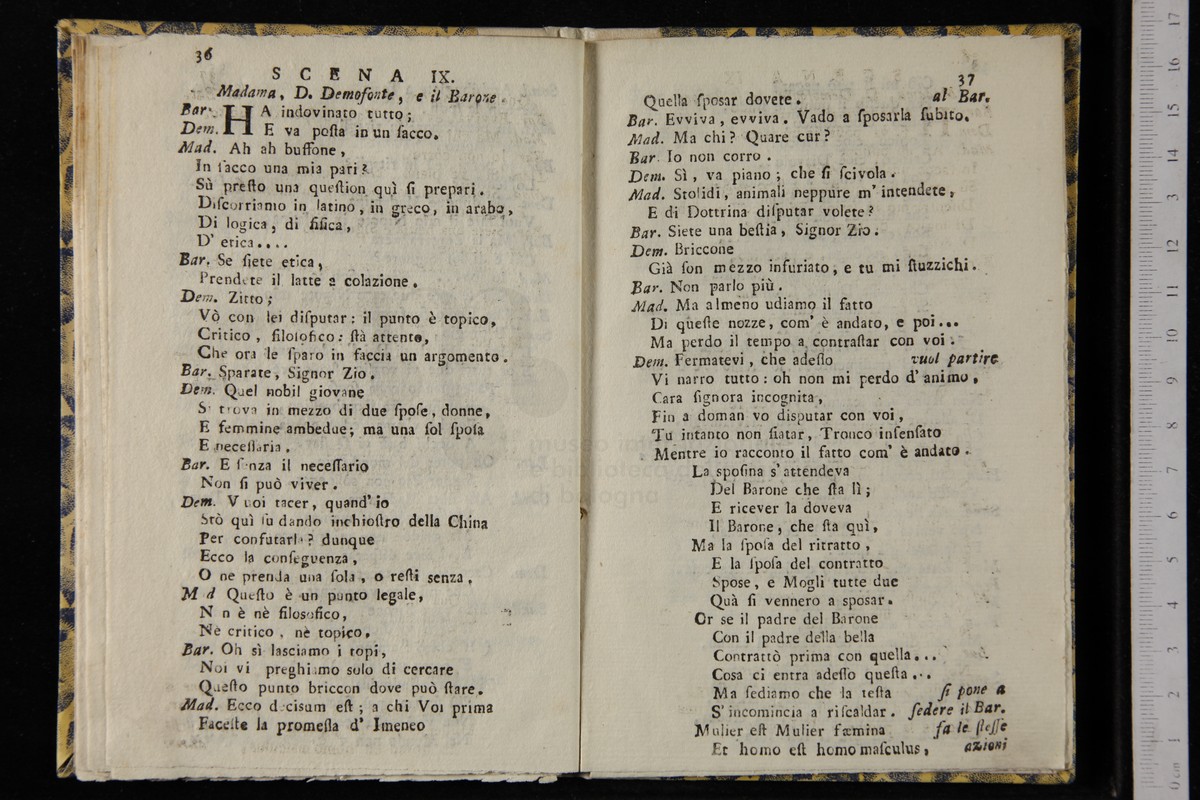 36
SCENA IX.
Madama, D. Demofonte, e il Barone.
Bar. HA indovinato tutto;
Dem. E va posta in un sacco.
Mad. Ah ah buffone,
In sacco una mia pari?
Sù presto una question quì si prepari.
Discorriamo in latino, in greco, in arabo,
Di logica, di fisica,
D' etica....
Bar. Se siete etica,
Prendete il latte a colazione.
Dem. Zitto;
Vò con lei disputar: il punto è topico,
Critico, filosofico: stà attento,
Che ora le sparo in faccia un argomento.
Bar. Sparate, Signor Zio.
Dem. Quel nobil giovane
Si trova in mezzo di due spose, donne,
E femmine ambedue; ma una sol sposa
E necessaria.
Bar. E senza il necessario
Non si può viver.
Dem. Vuoi tacer, quand' io
Stò quì sudando inchiostro della China
Per confutarla? dunque
Ecco la conseguenza,
O ne prenda una sola, o resti senza.
Mad Questo è un punto legale,
Non è nè filosofico,
Nè critico, nè topico.
Bar. Oh sì lasciamo i topi,
Noi vi preghiamo solo di cercare
Questo punto briccon dove può stare.
Mad. Ecco decisum est; a chi Voi prima
Faceste la promessa d' Imeneo
37
Quella sposar dovete. al Bar.
Bar. Evviva, evviva. Vado a sposarla subito.
Mad. Ma chi? Quare cur?
Bar. Io non corro.
Dem. Sì, va piano; che si scivola.
Mad. Stolidi, animali neppure m' intendete,
E di Dottrina disputar volete?
Bar. Siete una bestia, Signor Zio.
Dem. Briccone
Già son mezzo infuriato, e tu mi stuzzichi.
Bar. Non parlo più.
Mad. Ma almeno udiamo il fatto
Di queste nozze, com' è andato, e poi...
Ma perdo il tempo a contrastar con voi.
Dem. Fermatevi, che adesso vuol partire
Vi narro tutto: oh non mi perdo d' animo,
Cara signora incognita,
Fin a doman vo disputar con voi,
Tu intanto non fiatar, Tronco insensato
Mentre io racconto il fatto com' è andato.
La sposina s' attendeva
Del Barone che sta lì;
E ricever la doveva
Il Barone, che sta quì,
Ma la sposa del ritratto,
E la sposa del contratto
Spose, e Mogli tutte due
Quà si vennero a sposar.
Or se il padre del Barone
Con il padre della bella
Contrattò prima con quella...
Cosa ci entra adesso questa...
Ma sediamo che la testa si pone a
S' incomincia a riscaldar. sedere il Bar.
Mulier est Mulier fœmina fa le stesse
Et homo est homo masculus, azioni